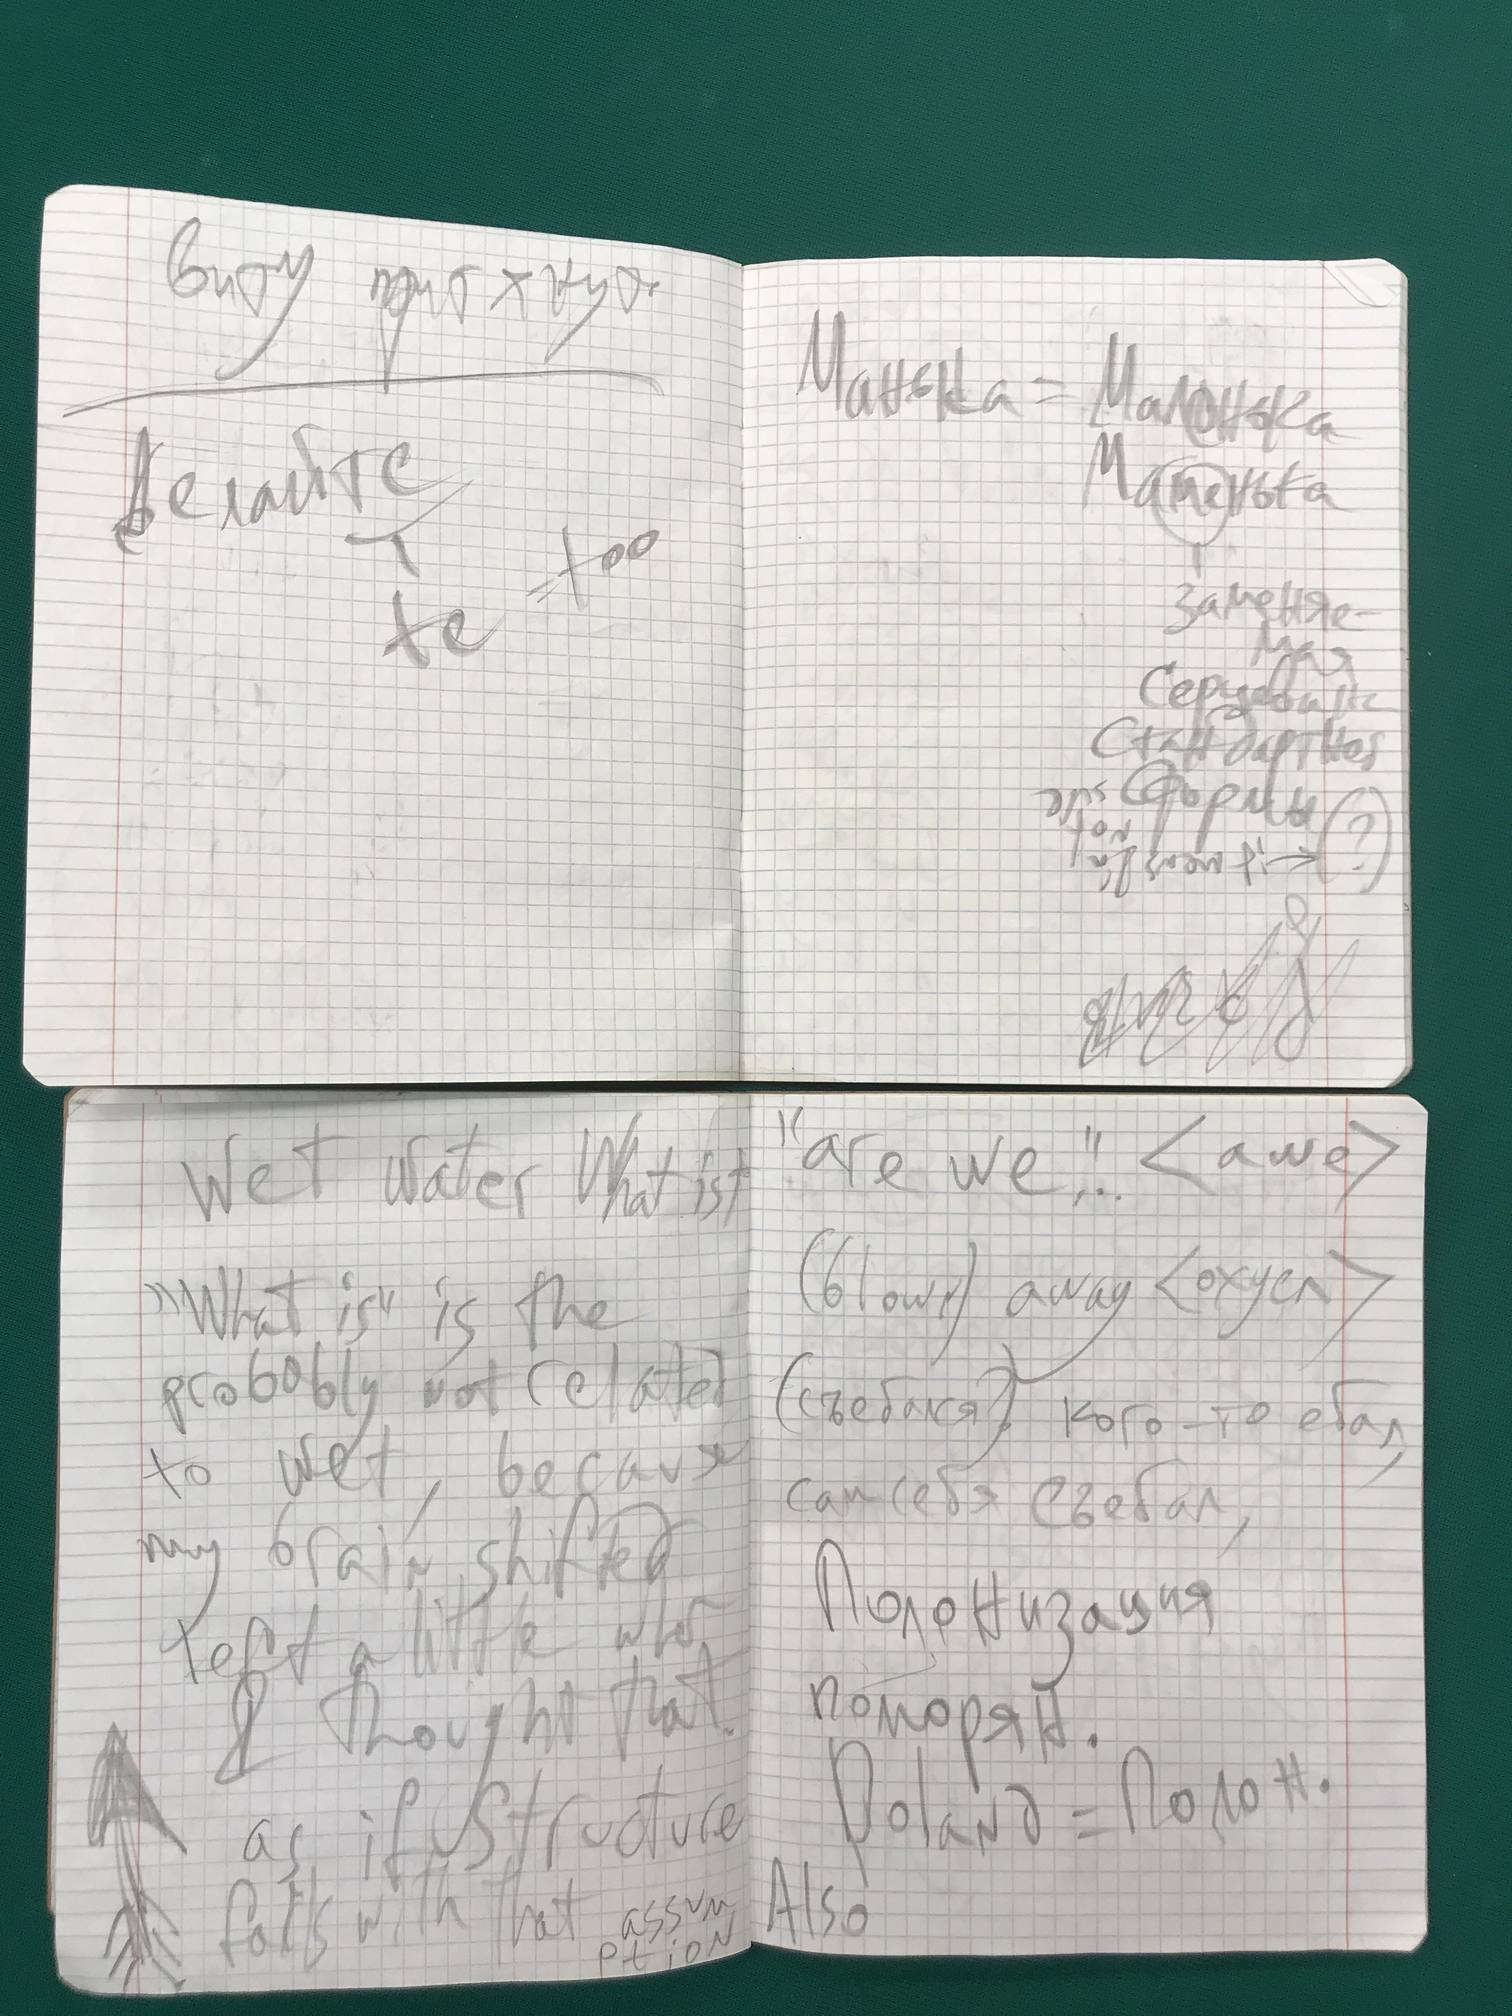 Делайте
те = too
Манька = Маленька
Маменька
заменяе-
мая
Середина
Стандартной
формы (?)
it means I'm
not sure
Wet water What ist
"What is" is the
probobly not related
to wet, because
my brain shifted
left a little when
I thought that.
as if structure
falls with that assum
ption
"are we".. <awe>
(blown) away <oxyen>
(съебался) кого-то ебал,
сам себя съебал,
Полонизация
поморян.
Poland = Полон.
Also